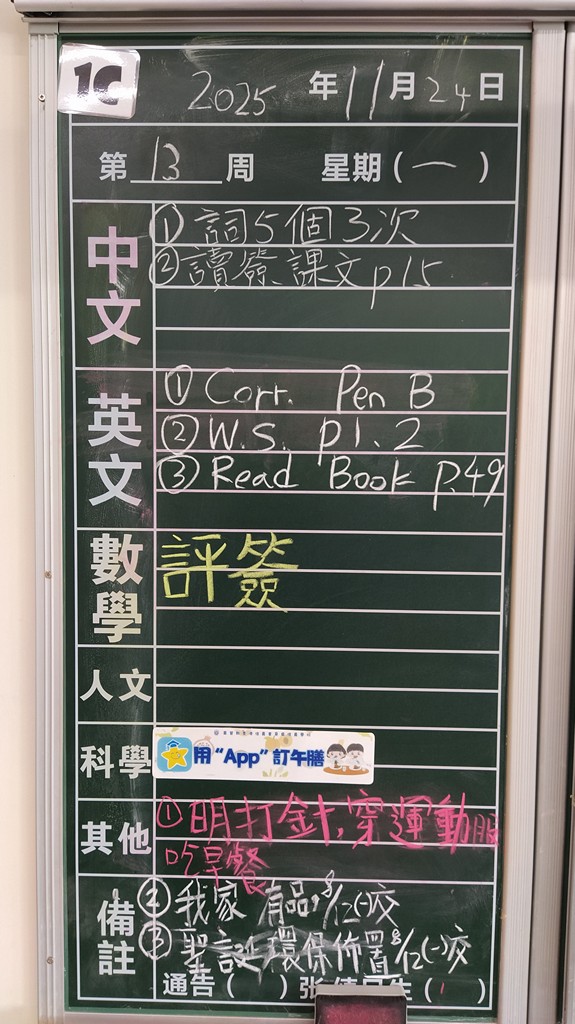 1C
2025 年 11 月 24 日
第 13 周 星期(一)
中文
①詞5個3次
②讀簽課文p15
英文
①Corr. Pen B
②W.S. p1.2
③Read Book p.49
數學
評簽
人文
科學
用“App”訂午膳
其他
①明打針,穿運動服
吃早餐
備註
②我家有品,8/12(一)交
③聖誕環保佈置8/12(一)交
通告( )张
生( )